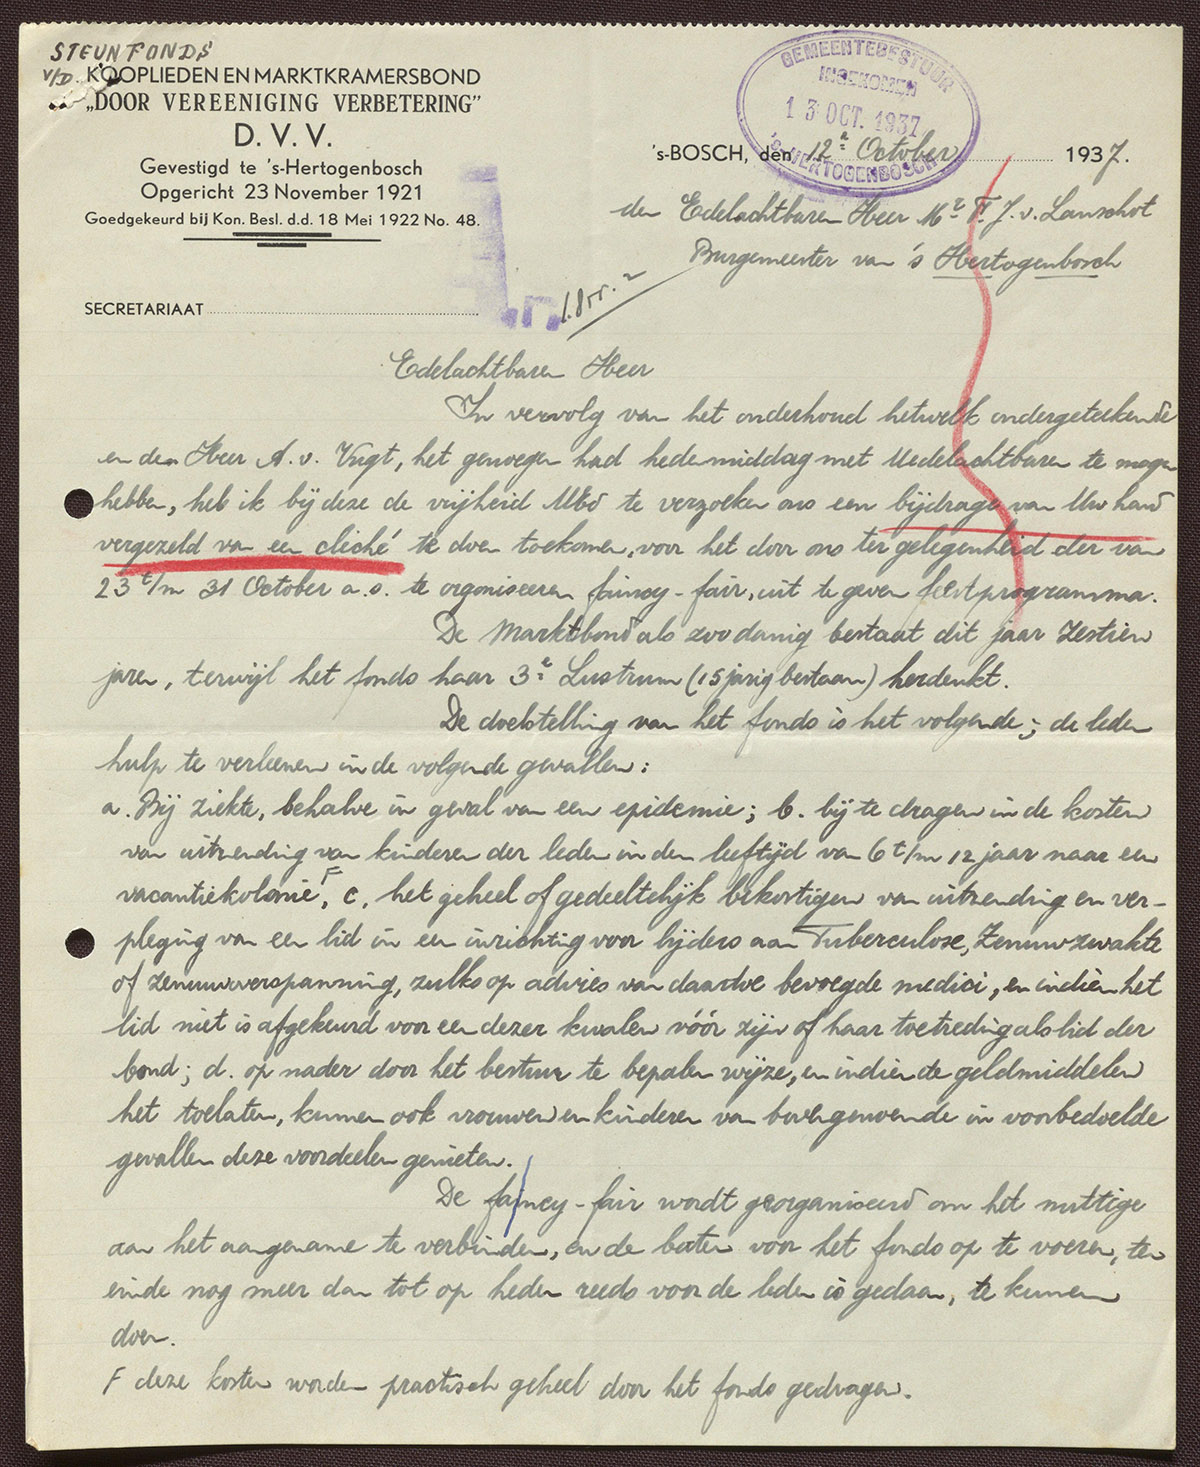 STEUNFONDS
v/D. KOOPLIEDEN EN MARKTKRAMERSBOND
„DOOR VEREENIGING VERBETERING”
D. V. V.
Gevestigd te 's-Hertogenbosch
Opgericht 23 November 1921
Goedgekeurd bij Kon. Besl. d.d. 18 Mei 1922 No. 48.
SECRETARIAAT
GEMEENTEBESTUUR
INGEKOMEN
13 OCT. 1937
'S-HERTOGENBOSCH
's-BOSCH, den 12e October 1937.
den Edelachtbaren Heer Mr F. J. v. Lanschot
Burgemeester van 's Hertogenbosch
Edelachtbaren Heer
In vervolg van het onderhoud hetwelk ondergeteekende
en den Heer A. v. Vugt, het genoegen had hedenmiddag met Uedelachtbaren te mogen
hebben, heb ik bij deze de vrijheid UEd te verzoeken ons een bijdrage van Uw hand
vergezeld van een cliché te doen toekomen, voor het door ons ter gelegenheid der van
23 t/m 31 October a.s. te organiseeren faincy-fair, uit te geven feestprogramma.
De Marktbond als zoodanig bestaat dit jaar Zestien
jaren, terwijl het fonds haar 3e Lustrum (15 jarig bestaan) herdenkt.
De doelstelling van het fonds is het volgende; de leden
hulp te verleenen in de volgende gevallen:
a. Bij ziekte, behalve in geval van een epidemie; b. bij te dragen in de kosten
van uitzending van kinderen der leden in den leeftijd van 6 t/m 12 jaar naar een
vacantiekolonie F, c. het geheel of gedeeltelijk bekostigen van uitzending en ver-
pleging van een lid in een inrichting voor lijders aan Tuberculose, Zenuwzwakte
of zenuwverspanning, zulks op advies van daartoe bevoegde medici, en indien het
lid niet is afgekeurd voor een dezer kwalen vóór zijn of haar toetreding als lid der
bond; d. op nader door het bestuur te bepalen wijze, en indien de geldmiddelen
het toelaten, kunnen ook vrouwen en kinderen van bovengenoemde in voorbedoelde
gevallen deze voordeelen genieten.
De faincy-fair wordt georganiseerd om het nuttige
aan het aangename te verbinden, en de baten voor het fonds op te voeren, ten
einde nog meer dan tot op heden reeds voor de leden is gedaan, te kunnen
doen.
F deze kosten worden practisch geheel door het fonds gedragen.